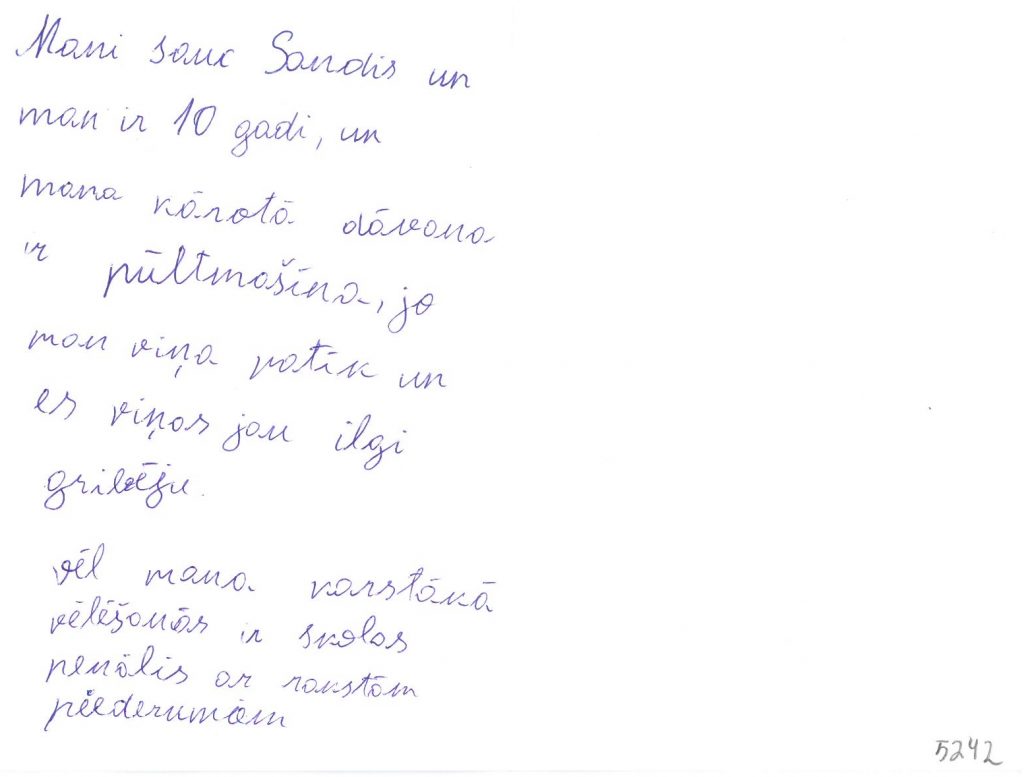 Mani sauc Sandis un
man ir 10 gadi, un
mana kārotā dāvana
ir pūltmašīna, jo
man viņa patīk un
es viņas jau ilgi
gribēju.
vēl mana karstākā
vēlēšanās ir skolas
penālis ar rakstām
piederumām
5242